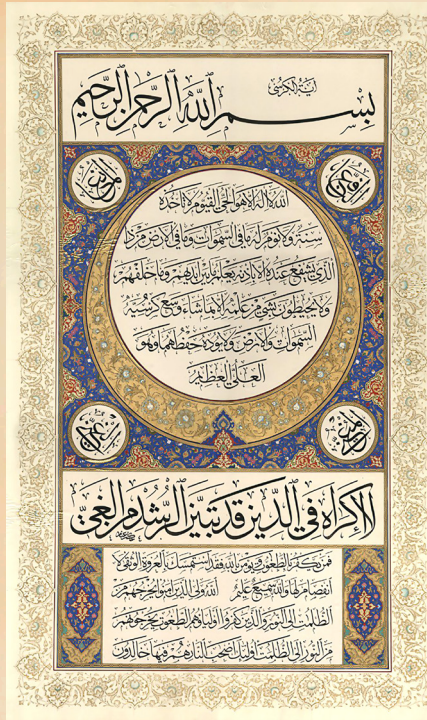 آية الكرسي
بسم الله الرحمن الرحيم
الله لا اله الا هو الحي القيوم لا تأخذه
سنة ولا نوم له ما في السموات وما في الارض من ذا
الذي يشفع عنده الا باذنه يعلم ما بين ايديهم وما خلفهم
ولا يحيطون بشيء من علمه الا بما شاء وسع كرسيه
السموات والارض ولا يؤده حفظهما وهو
العلي العظيم
لا اكراه في الدين قد تبين الرشد من الغي
فمن يكفر بالطاغوت ويؤمن بالله فقد استمسك بالعروة الوثقى لا
انفصام لها والله سميع عليم الله ولي الذين امنوا يخرجهم من
الظلمت الى النور والذين كفروا اولياؤهم الطاغوت يخرجونهم
من النور الى الظلمت اولئك اصحب النار هم فيها خالدون